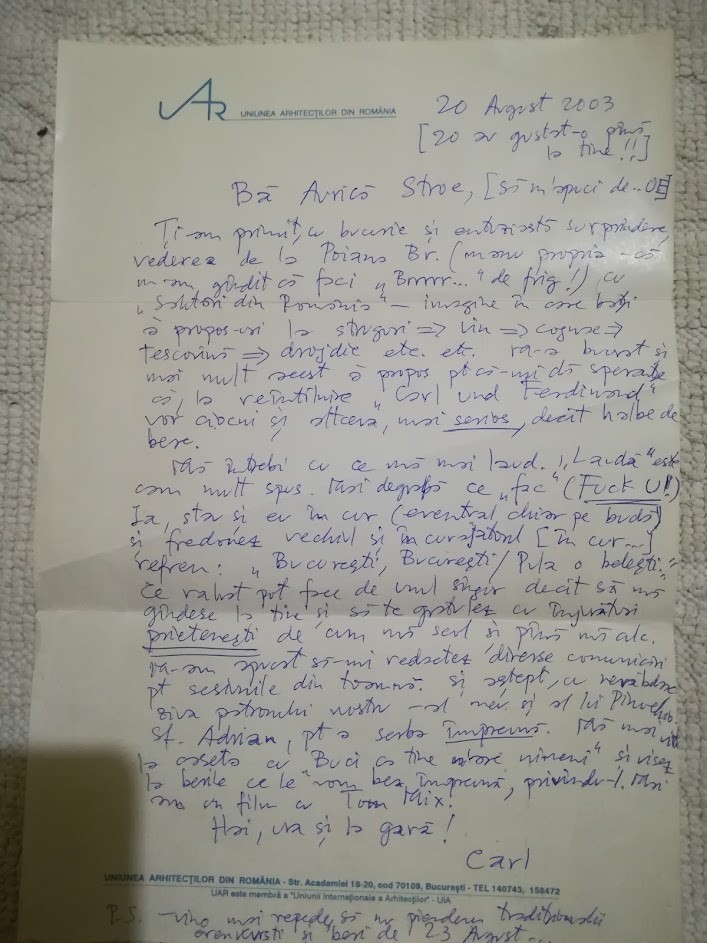 UAR
UNIUNEA ARHITECȚILOR DIN ROMÂNIA
20 August 2003
[20 au gustat-o pînă
la tine!!]
Bă Avrică Stroe, [Să m'apuci de..
Ți-am primit, cu bucurie și entuziastă surprindere,
vederea de la Poiana Br. (manu propria - că
m-am gîndit că faci „Brrrr..." de frig!) cu
„Salutări din România" - imagine în care bați
à propos-uri la struguri => vin => =>
tescovină => drojdie etc. etc. M-a bucurat și
mai mult acest à propos pt că-mi dă speranțe
că, la reîntîlnire „Carl und Ferdinand"
vor ciocni și altceva, mai serios, decît halbe de
bere.
Mă întrebi cu ce mă mai laud. „Laudă" este
cam mult spus. Mai degrabă ce „fac" (Fuck U!)
Ia, stau și eu în cur (eventual chiar pe budă)
și fredonez vechiul și încurajatorul [în cur...]
refren: „București, București / Pula o belești."
Ce rahat pot face de unul singur decît să mă
gîndesc la tine și să te gratulez cu înjurături
prietenești de cum mă scol și pînă mă culc.
M-am apucat să-mi redactez diverse comunicări
pt sesiunile din toamnă. Și aștept, cu nerăbdare
ziua patronului nostru - al meu și al lui
Sf. Adrian, pt a serba împreună. Mă mai uit
la caseta cu Buci ca tine n'are nimeni" și visez
la berile ce le vom bea împreună, privindu-l. Mai
am un film cu Tom Mix!
Hai, ura și la gară!
Carl
UNIUNEA ARHITECȚILOR DIN ROMÂNIA - Str. Academiei 18-20, cod 70109, București - TEL 140743, 158472
UAR este membră a "Uniunii Internaționale a Arhitecților" - UIA
P.S. - Vino mai repede, să nu pierdem tradiționalii
și beri de 23 August...